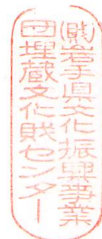 ㈶岩手県文化振興事業
団埋蔵文化財センター